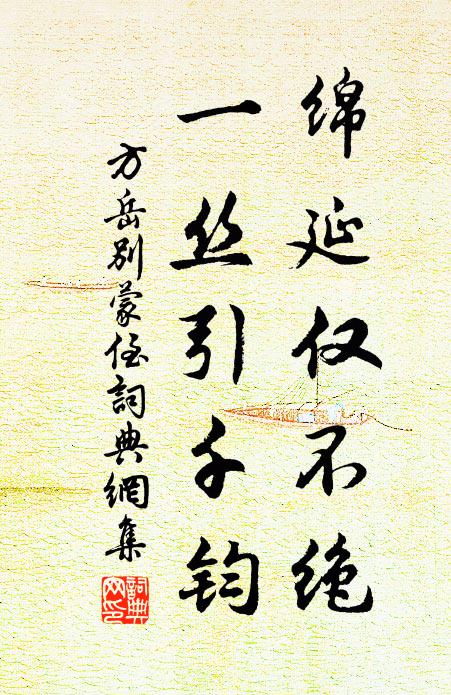 绵延仅不绝
一丝引千钧
方岳别蒙侄詞典網集
詞典网印